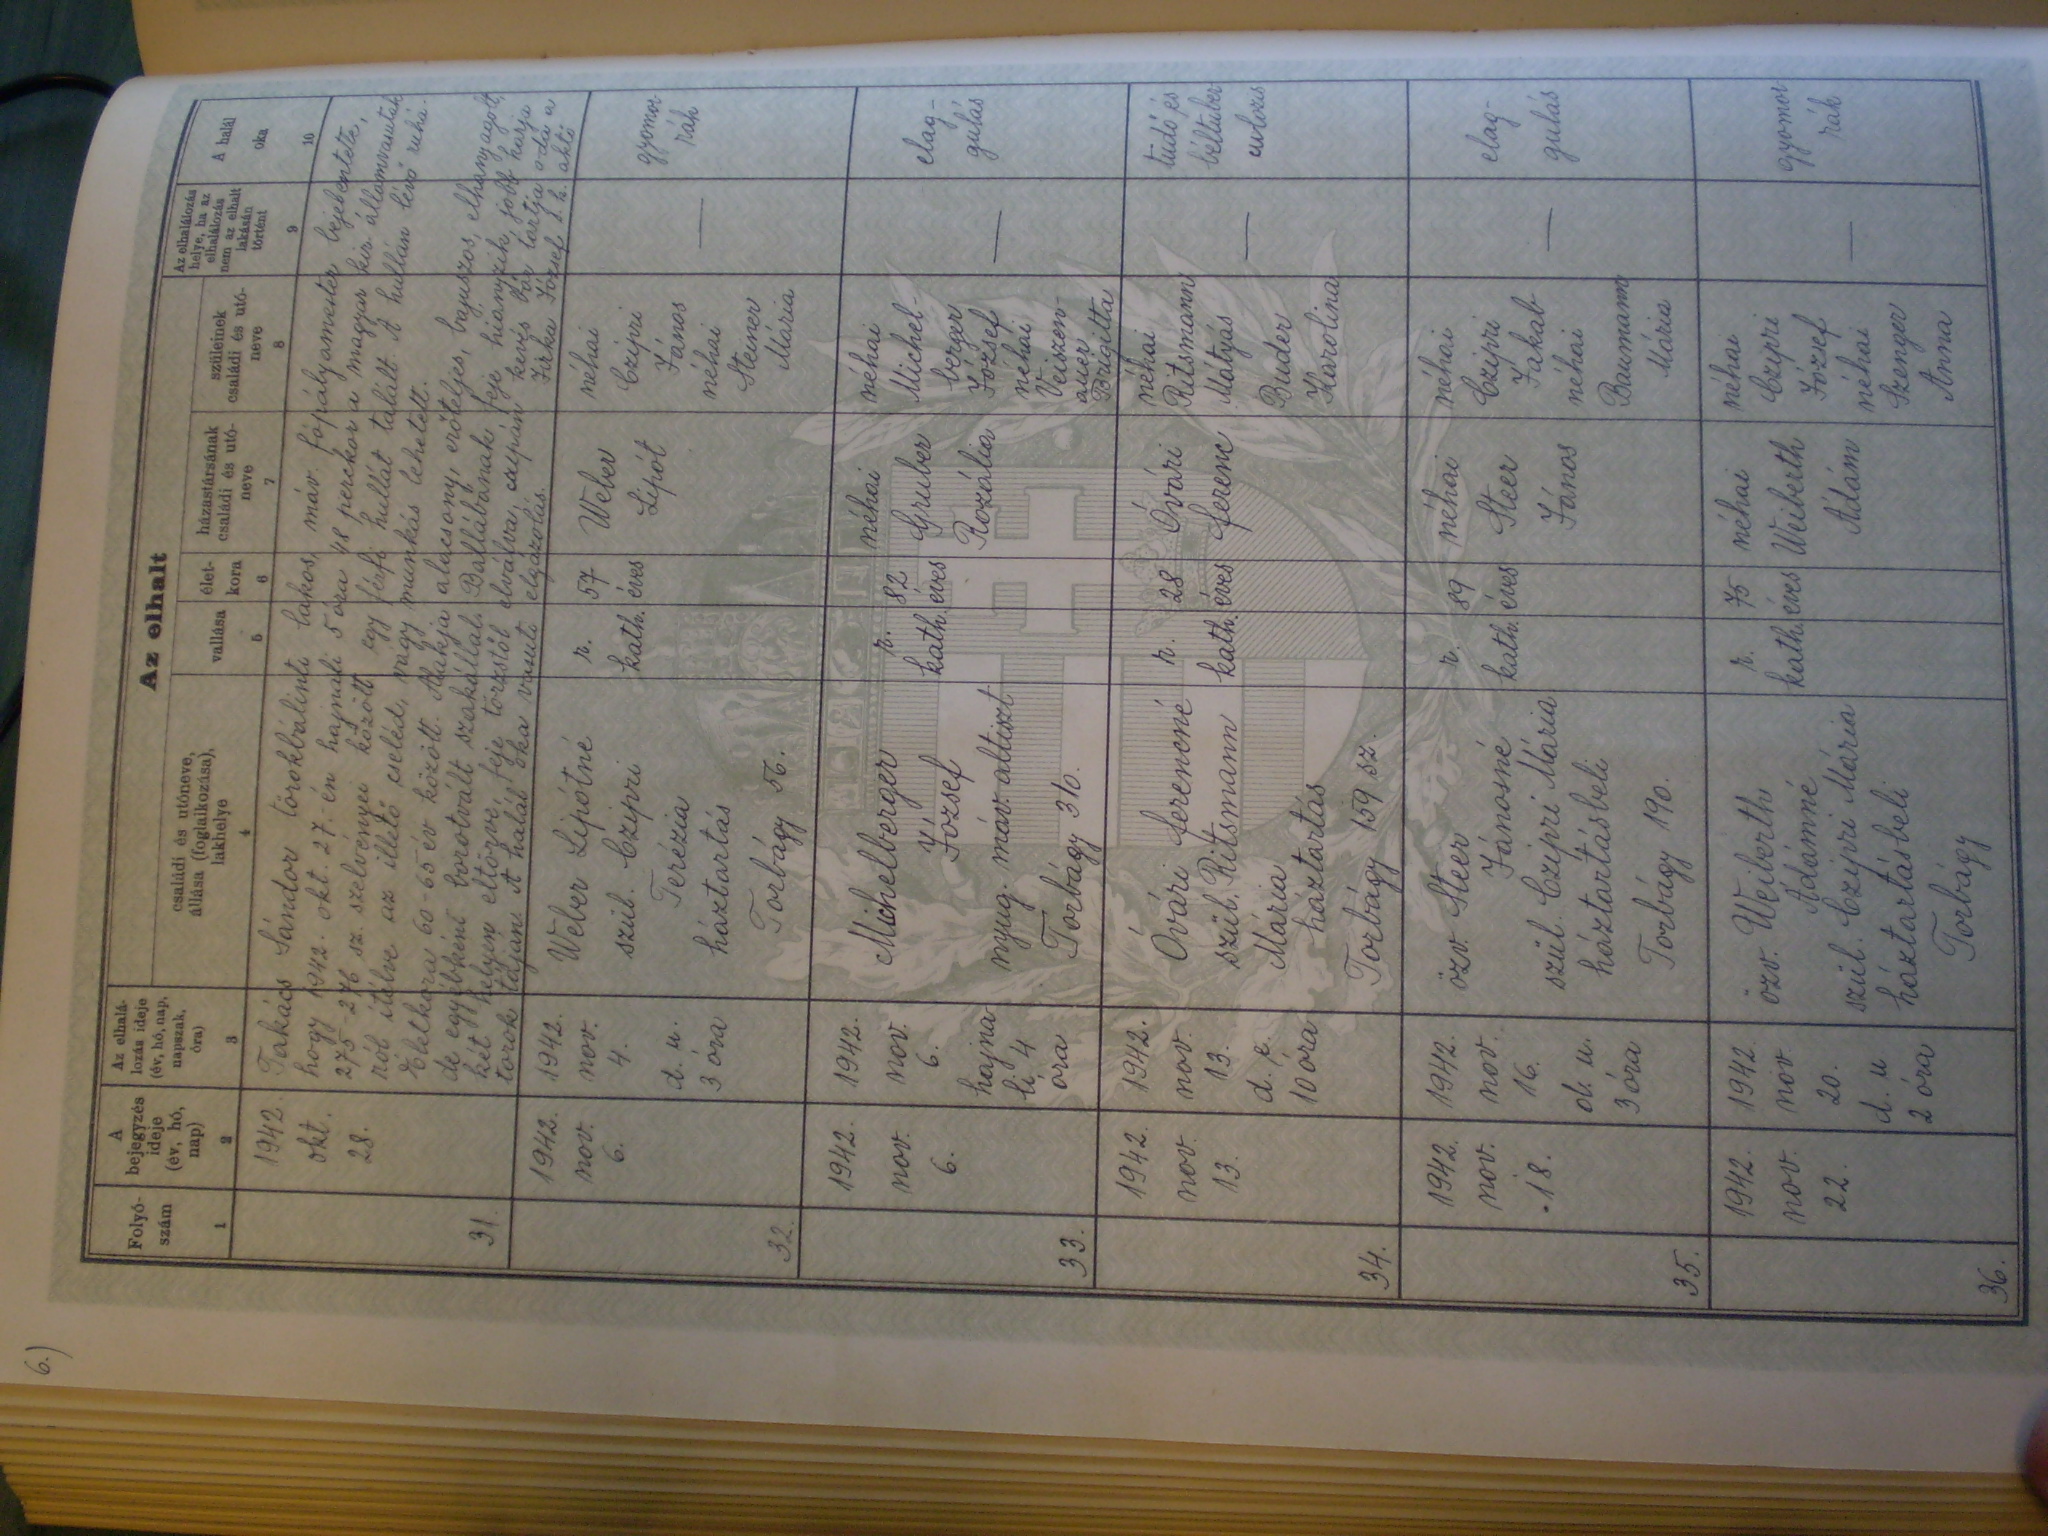 6.)
Az elhalt
Folyó-
szám
A
bejegyzés
ideje
(év, hó,
nap)
Az elhalá-
lozás ideje
(év, hó, nap,
napszak,
óra)
családi és utóneve,
állása (foglalkozása),
lakhelye
vallása
élet-
kora
házastársának
családi és utó-
neve
szüleinek
családi és utó-
neve
Az elhalálozás
helye, ha az
elhalálozás
nem az elhalt
lakásán
történt
A halál
oka
1
2
3
4
5
6
7
8
9
10
31.
1942.
okt.
28.
Takács Sándor törökbálinti lakos, máv főpályamester bejelentette,
hogy 1942. okt. 27.-én hajnali 5 óra 48 perckor a magyar kir. államvasutak
275-276 sz. szelvényei között egy férfi hullát talált. A hullán lévő ruhá-
ról ítélve az illető cseléd, vagy munkás lehetett.
Életkora 60-65 év között. Alakja alacsony, erőteljes, bajuszos, elhanyagolt,
de egyébként borotvált szakállal. Ballábának feje hiányzik, jobb karja
két helyen eltörve, feje törzstől elválva, csupán kevés bőr tartja oda a
torok táján. A halál oka vasúti elgázolás. Jirka József s. k. aktő
32.
1942.
nov.
6.
1942.
nov.
4.
d. u.
3 óra
Weber Lipótné
szül. Czipri
Terézia
háztartás
Torbágy 56.
r.
kath.
57
éves
Weber
Lipót
néhai
Czipri
János
néhai
Steiner
Mária
—
gyomor-
rák
33.
1942.
nov.
6.
1942.
nov.
6.
hajna-
li 4
óra
Michelberger
József
nyug. máv. altiszt
Torbágy 36.
r.
kath.
82
éves
néhai
Gruber
Rozália
néhai
Michel-
berger
József
néhai
Veiszen-
auer
Brigitta
—
elag-
gulás
34.
1942.
nov
13.
1942.
nov.
13.
d. e.
10 óra
Óvári Ferencné
szül. Ritsmann
Mária
háztartás
Torbágy 159 sz.
r.
kath.
28
éves
Óvári
Ferenc
néhai
Ritsmann
Mátyás
Binder
Karolina
—
tüdő és
béltuber
culozis
35.
1942.
nov.
18.
1942.
nov.
16.
d. u.
3 óra
özv. Steer
Jánosné
szül. Czipri Mária
háztartásbeli
Torbágy 190.
r.
kath.
89
éves
néhai
Steer
János
néhai
Czipri
Jakab
néhai
Baumann
Mária
—
elag-
gulás
36.
1942.
nov.
22.
1942.
nov
20.
d. u
2 óra
özv. Weiberth
Ádámné
szül. Czipri Mária
háztartásbeli
Torbágy
r.
kath.
75
éves
néhai
Weiberth
Ádám
néhai
Czipri
József
néhai
Szenger
Anna
—
gyomor
rák